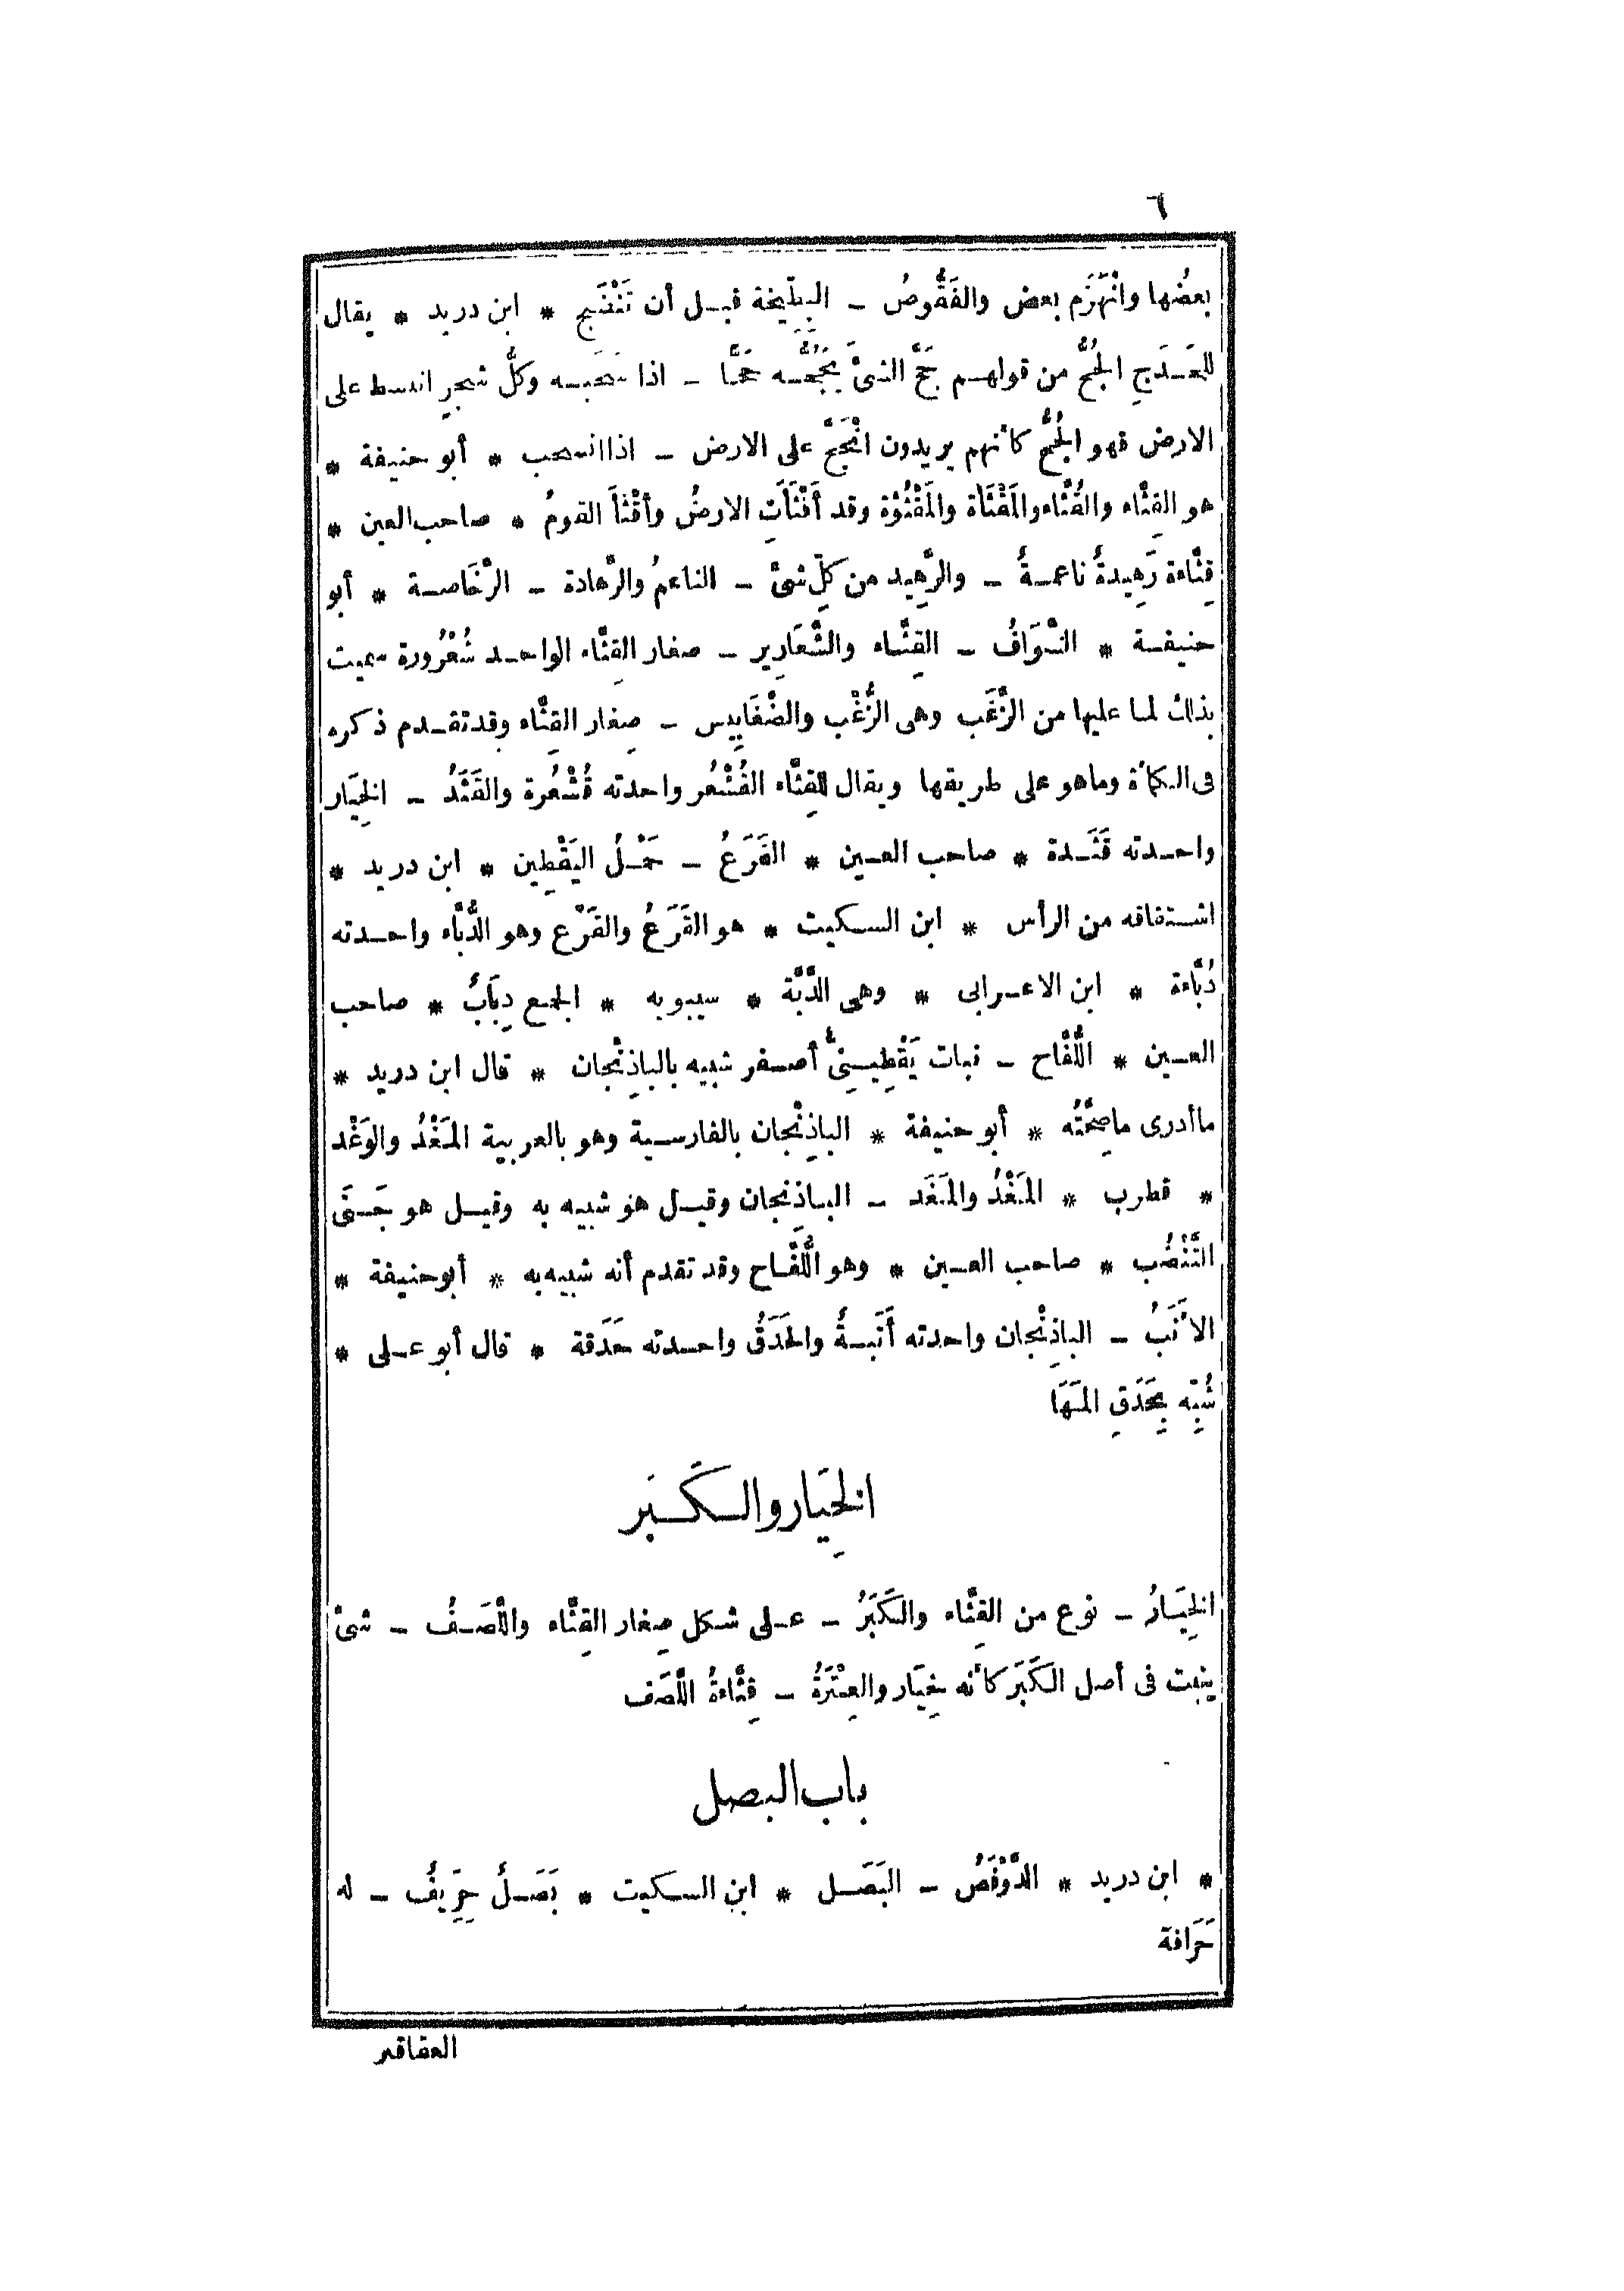 ٦
بعضُها وانْهَزَم بعض والفَقُّوصُ – البِطِّيخة قبل أن تَنْضَج * ابن دريد * يقال
للحَدَجِ الجُحُّ من قولهم جَحَّ الشئَ يَجُحُّه جَحًّا – اذا سَحَبه وكلُّ شجرٍ انبسط على
الارض فهو الجُحُّ كأنهم يريدون انْجَحَّ على الارض – اذا انسحب * أبو حنيفة *
هو القِثَّاء والقُثَّاء والمَقْثَأَة والمَقْثُؤَة وقد أَقْثَأَتِ الارضُ وأقْثَأَ القومُ * صاحب العين *
قِثَّاءة رَهِيدةٌ ناعمةٌ – والرَّهِيد من كلِّ شئ – الناعمُ والرَّهادة – الرَّخَاصة * أبو
حنيفة * السَّوَافُ – القِثَّاء والشَّعَارِير – صغار القِثَّاء الواحد شُعْرُورة سميت
بذلك لما عليها من الزَّغَب وهى الزُّغْب والضَّغَابِيس – صِغار القِثَّاء وقد تقدم ذكره
فى الكمأة وما هو على طريقها ويقال للقِثَّاء القُشْعُر واحدته قُشْعُرة والقَثَدُ – الخِيَار
واحدته قَثَدة * صاحب العين * القَرَعُ – حَمْلُ اليَقْطِين * ابن دريد *
اشتقاقه من الرأس * ابن السكيت * هو القَرَعُ والقَرْع وهو الدُّبَّاء واحدته
دُبَّاءة * ابن الاعرابى * وهى الدَّبَّة * سيبويه * الجمع دِبَابٌ * صاحب
العين * اللُّفَّاح – نبات يَقْطِينِىٌّ أصفر شبيه بالباذِنْجان * قال ابن دريد *
ما أدرى ماصِحَّتُه * أبو حنيفة * الباذِنْجان بالفارسية وهو بالعربية المَغْدُ والوَغْد
* قطرب * المَغْدُ والمَغَد – الباذِنجان وقيل هو شبيه به وقيل هو جَنَى
التَّنْضُب * صاحب العين * وهو اللُّفَّاح وقد تقدم أنه شبيه به * أبو حنيفة *
الأَنَبُ – الباذِنْجان واحدته أَنَبةٌ والحَدَقُ واحدته حَدَقة * قال أبو على *
شُبِّه بِحَدَقِ المَهَا
الخِيَار والكَبَر
الخِيَارُ – نوع من القِثَّاء والكَبَرُ – على شكل صِغار القِثَّاء واللَّصَفُ – شئ
ينبت فى أصل الكَبَر كأنه خِيَار والعِتْرَةُ – قِثَّاءةُ اللَّصَف
باب البصل
* ابن دريد * الدَّوْفَصُ – البَصَل * ابن السكيت * بَصَلٌ حِرِّيفٌ – له
حَرَافة
العقاقير